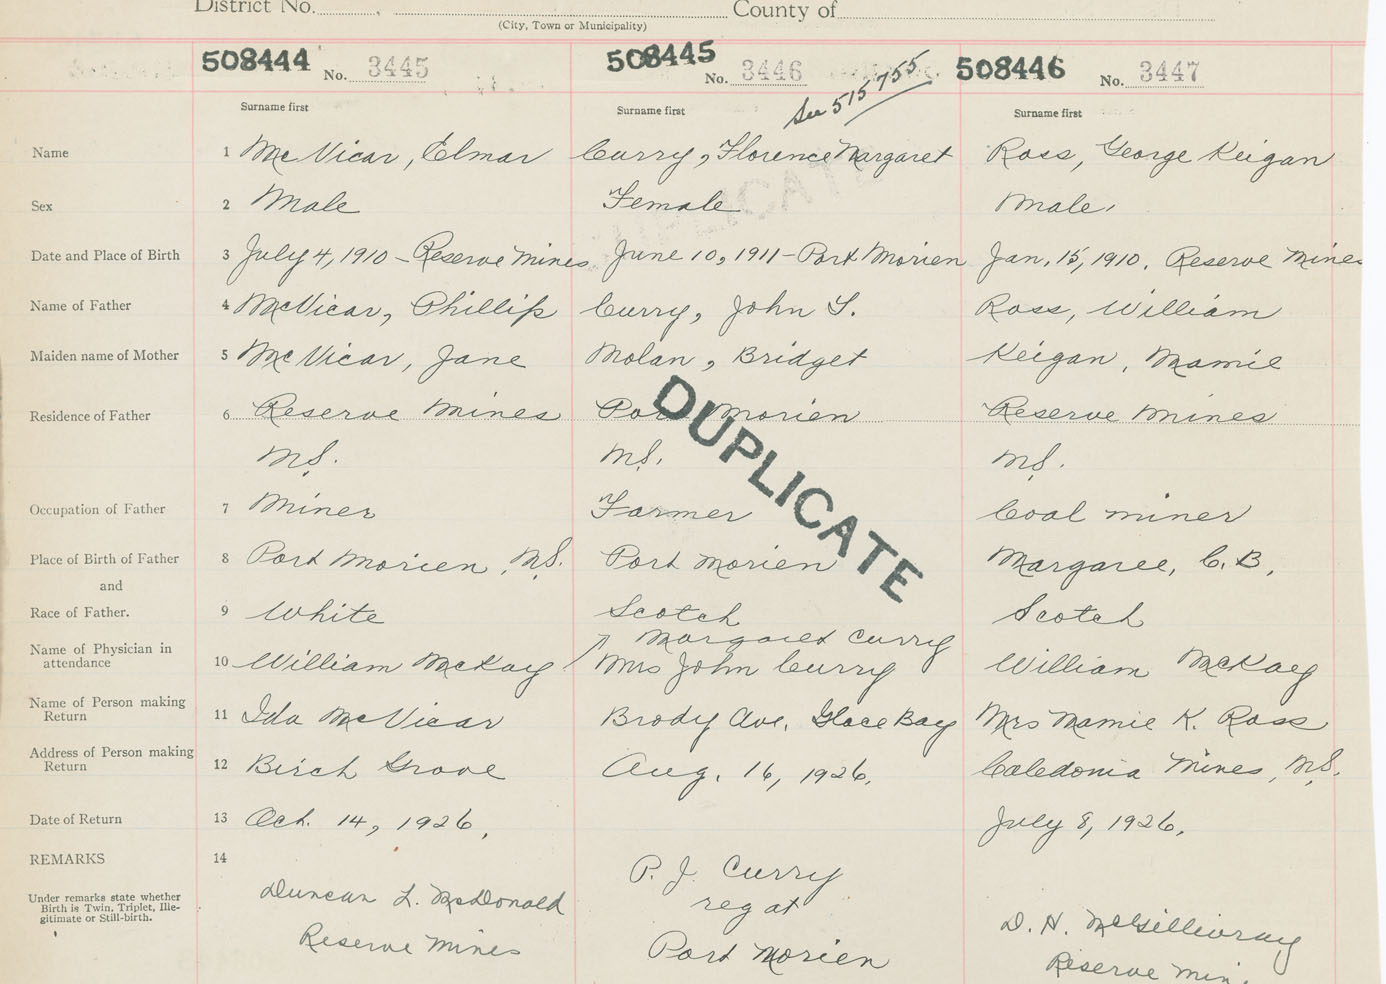 District No. County of
(City, Town or Municipality)
508444 No. 3445 508445 No. 3446 508446 No. 3447
See 515755
Surname first Surname first Surname first
Name 1 McVicar, Elmar Curry, Florence Margaret Ross, George Keigan
Sex 2 Male Female Male.
Date and Place of Birth 3 July 4, 1910 - Reserve Mines June 10, 1911 - Port Morien Jan. 15, 1910. Reserve Mines
Name of Father 4 McVicar, Phillip Curry, John S. Ross, William
Maiden name of Mother 5 McVicar, Jane Molan, Bridget Keigan, Mamie
Residence of Father 6 Reserve Mines Port Morien Reserve Mines
N.S. N.S. N.S.
DUPLICATE
Occupation of Father 7 Miner Farmer Coal miner
Place of Birth of Father 8 Port Morien, N.S. Port Morien Margaree, C.B.
and
Race of Father. 9 White Scotch Scotch
Margaret Curry
Name of Physician in attendance 10 William McKay Mrs John Curry William McKay
Name of Person making Return 11 Ida McVicar Brody Ave. Glace Bay Mrs Mamie K. Ross
Address of Person making Return 12 Birch Grove Aug. 16, 1926. Caledonia Mines, N.S.
Date of Return 13 Oct. 14, 1926. July 8, 1926.
REMARKS 14
Under remarks state whether
Birth is Twin, Triplet, Ille-
gitimate or Still-birth.
Duncan L. McDonald P. J. Curry D. H. McGillivray
Reserve Mines reg at Reserve Min
Port Morien